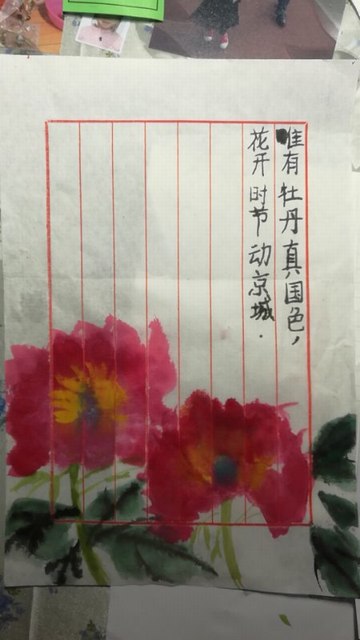 唯有牡丹真国色,
花开时节动京城.